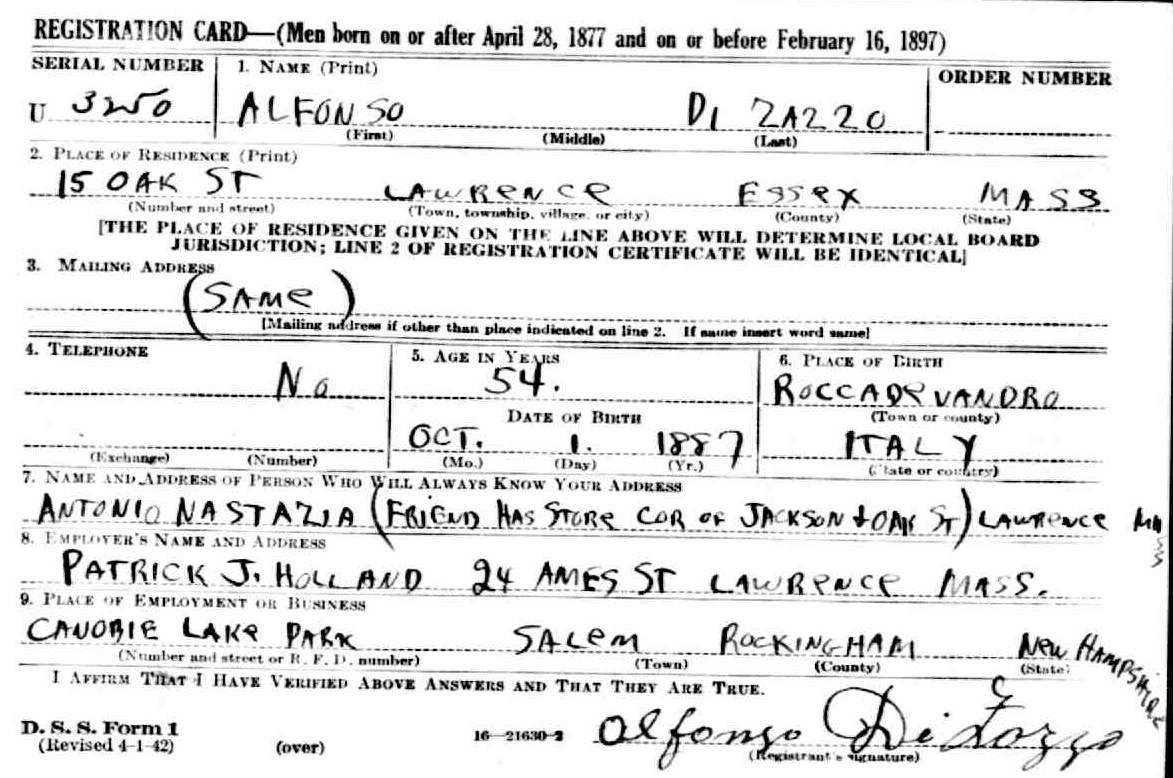 REGISTRATION CARD—(Men born on or after April 28, 1877 and on or before February 16, 1897)
SERIAL NUMBER 1. NAME (Print) ORDER NUMBER
U 3250 ALFONSO DI ZAZZO
(First) (Middle) (Last)
2. PLACE OF RESIDENCE (Print)
15 OAK ST LAWRENCE ESSEX MASS
(Number and street) (Town, township, village, or city) (County) (State)
[THE PLACE OF RESIDENCE GIVEN ON THE LINE ABOVE WILL DETERMINE LOCAL BOARD
JURISDICTION; LINE 2 OF REGISTRATION CERTIFICATE WILL BE IDENTICAL]
3. MAILING ADDRESS
(SAME)
[Mailing address if other than place indicated on line 2. If same insert word same]
4. TELEPHONE 5. AGE IN YEARS 6. PLACE OF BIRTH
No 54. ROCCADEVANDRO
DATE OF BIRTH (Town or county)
OCT. 1. 1887 ITALY
(Exchange) (Number) (Mo.) (Day) (Yr.) (State or country)
7. NAME AND ADDRESS OF PERSON WHO WILL ALWAYS KNOW YOUR ADDRESS
ANTONIO NASTAZIA (FRIEND HAS STORE COR OF JACKSON + OAK ST) LAWRENCE MASS
8. EMPLOYER'S NAME AND ADDRESS
PATRICK J. HOLLAND 24 AMES ST LAWRENCE MASS.
9. PLACE OF EMPLOYMENT OR BUSINESS
CANOBIE LAKE PARK SALEM ROCKINGHAM NEW HAMPSHIRE
(Number and street or R. F. D. number) (Town) (County) (State)
I AFFIRM THAT I HAVE VERIFIED ABOVE ANSWERS AND THAT THEY ARE TRUE.
D. S. S. Form 1
(Revised 4-1-42) (over) 16—21630-2 Alfonso Di Zazzo
(Registrant's signature)